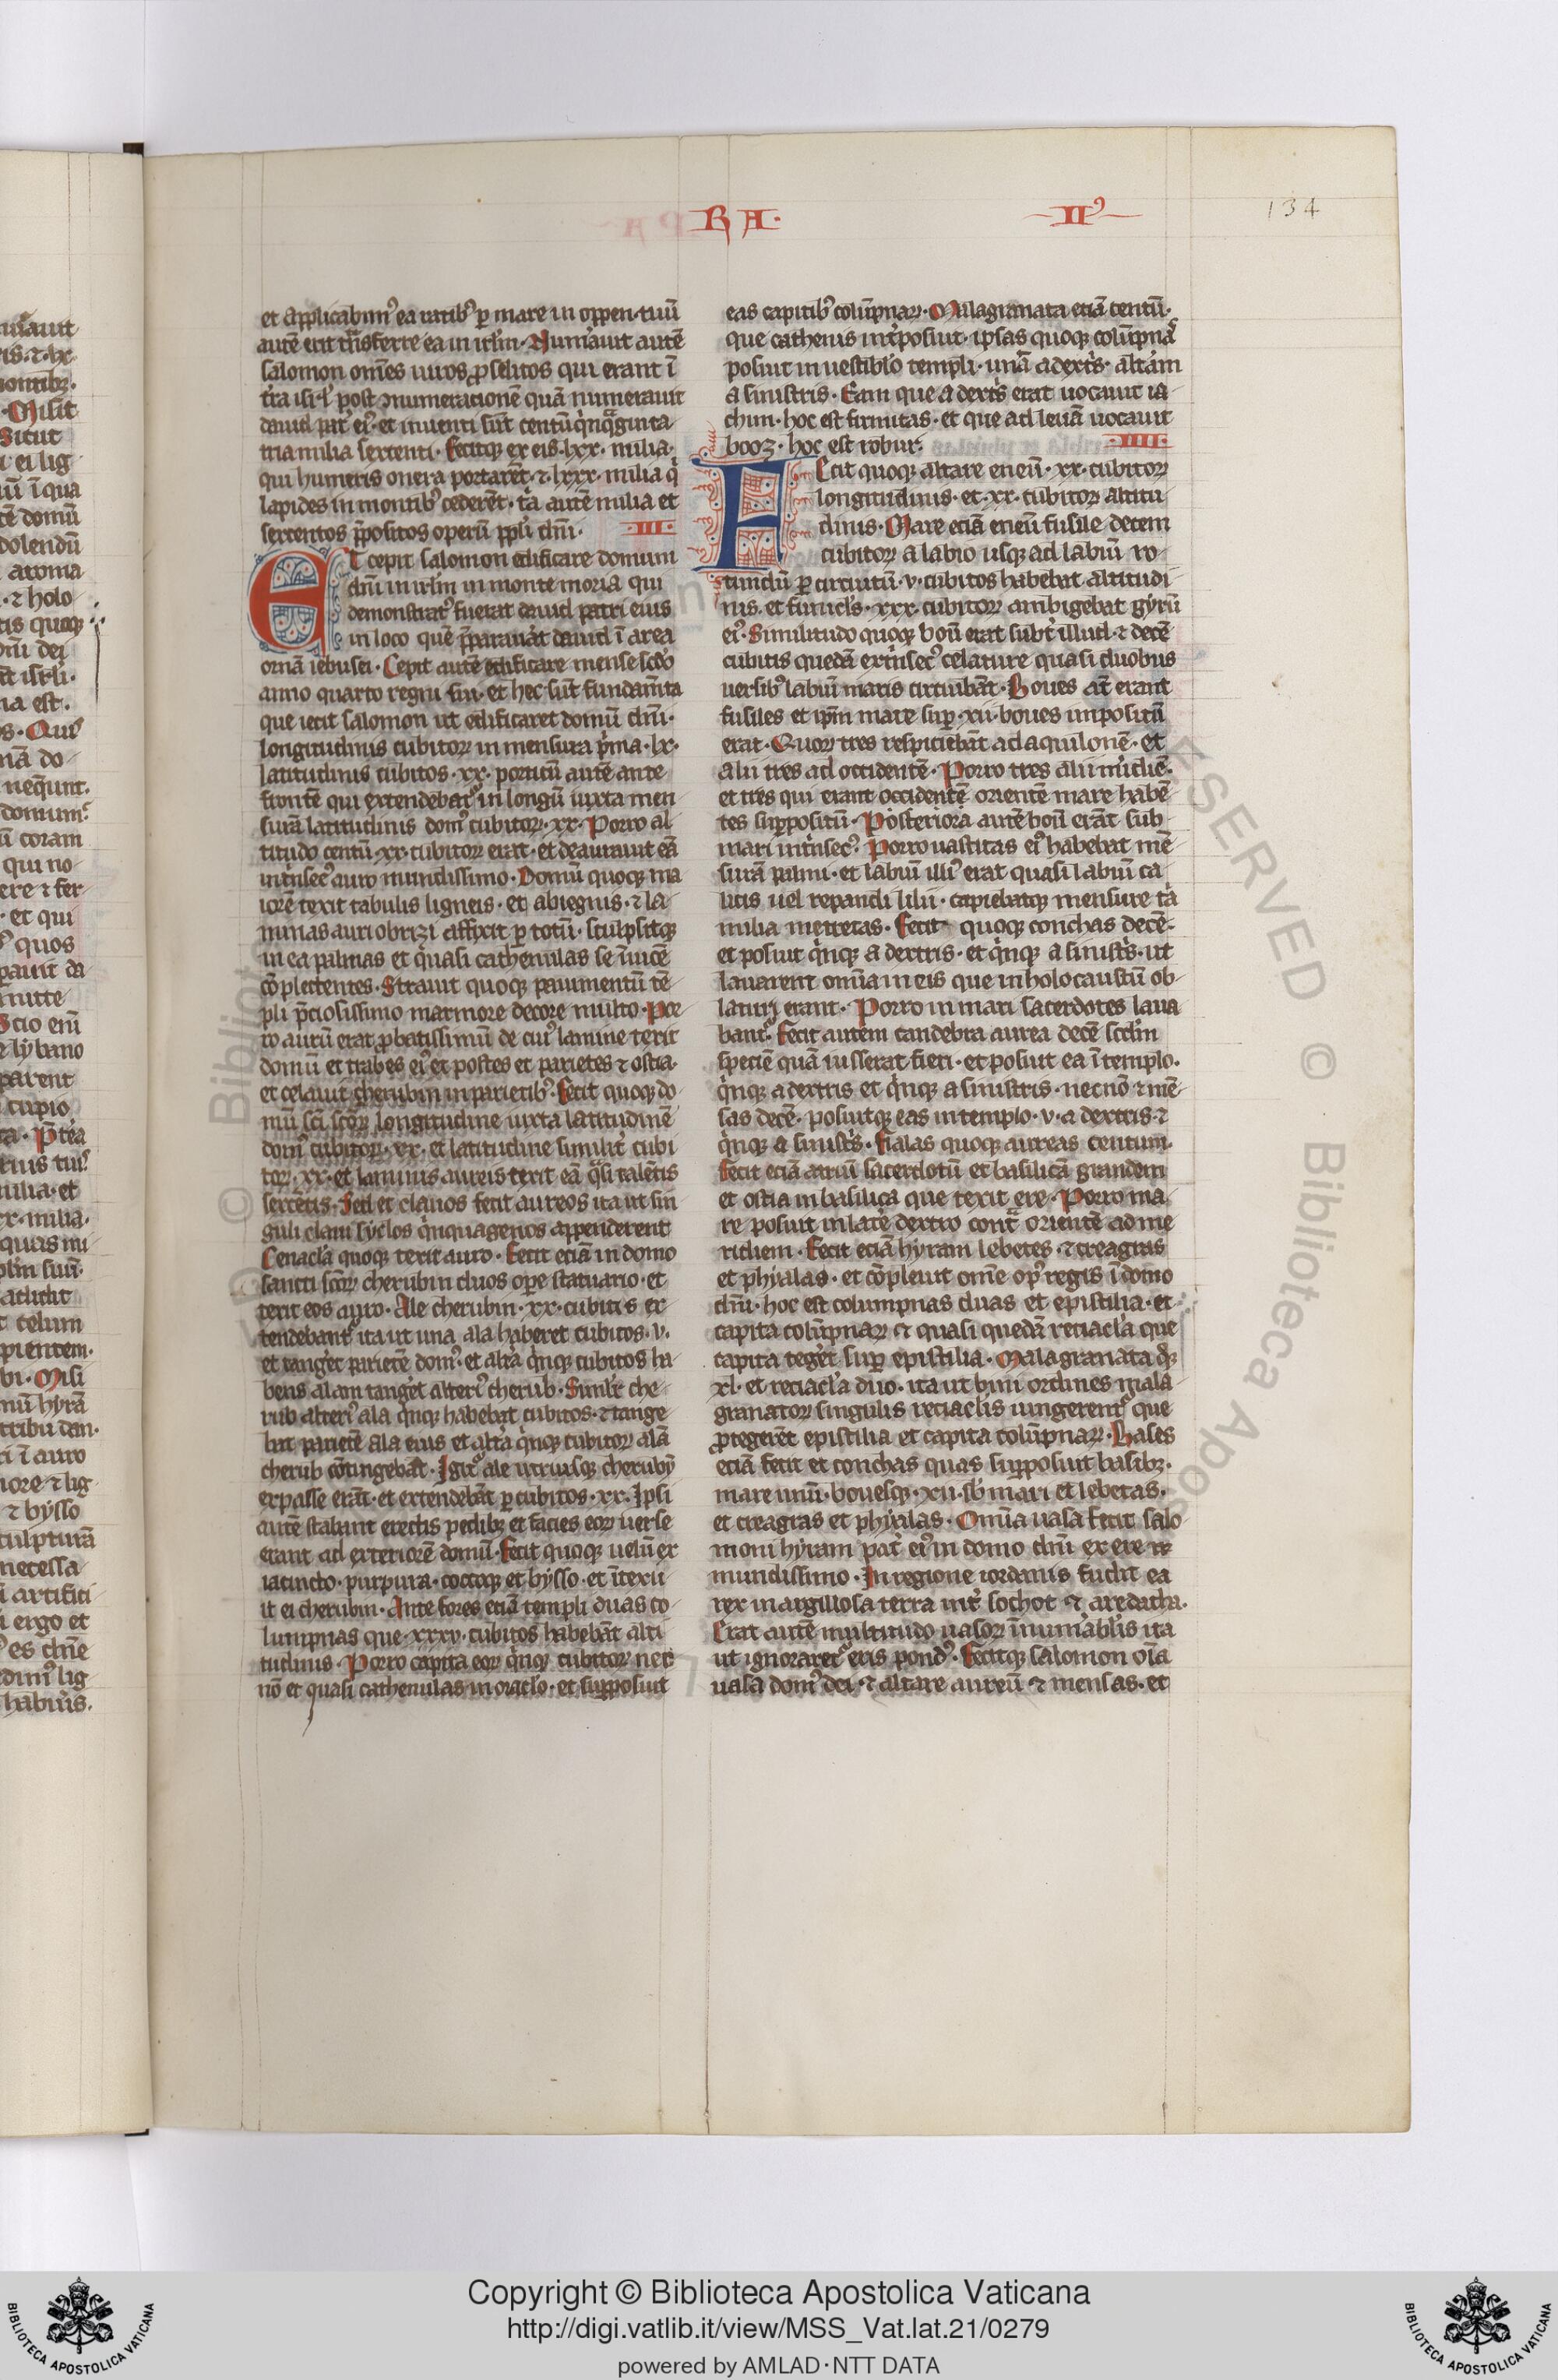 RA· II⁹ 134
et applicabim⁹ ea ratib⁹ ꝑ mare in oppen· tuū
autē erit trāsferre ea in irl̄m· Num̄auit autē
salomon om̄es uiros ꝓselitos qui erant ī
tr̄a isrl̄ post dinumeracionē quā numerauit
dauid pat̄ ei⁹· et inuenti sūt centū qͥnqᵃginta
tria milia sexcenti· fecitqꝫ ex eis· lxx· milia·
qui humeris onera portarēt· ⁊ lxxx· milia qͥ
lapides in montib⁹ cederēt· tͥa autē milia et
sexcentos p̄positos operū pp̄li dn̄i· ·III·
ET cepit salomon edificare domum
dn̄i in irl̄m in monte moria qui
demonstrat⁹ fuerat dauid patri eius
in loco quē p̄parauat dauid ī area
ornā iebusei· Cepit autē edificare mense scd̄o
anno quarto regni sui· et hec sūt fundam̄ta
que iecit salomon ut edificaret domū dn̄i·
longitudinis cubitoꝝ in mensura pͥma· lx·
latitudinis cubitos· xx· porticū autē ante
frontē qui extendebat᷑ in longū iuxta men
surā latitudinis dom⁹ cubitoꝝ· xx· Porro al
titudo centū· xx· cubitoꝝ erat· et deaurauit eā
intͥnsec⁹ auro mundissimo· Domū quoqꝫ ma
iorē texit tabulis ligneis· et abiegnis· ⁊ la
minas auri obrizi affixit ꝑ totū· sculpsitqꝫ
in ea palmas et quasi cathenulas se īuicē
cōplectentes· Strauit quoqꝫ pauimentū tē
pli p̄ciosissimo marmore decore multo· Por
ro aurū erat ꝓbatissimū de cui⁹ lamine texit
domū et trabes ei⁹ et postes et parietes ⁊ ostia·
et celauit cherubin in parietib⁹· fecit quoqꝫ do
mū sc̄i sc̄oꝝ longitudine iuxta latitudinē
dom⁹ cubitoꝝ· xx· et latitudine similit̄ cubi
toꝝ· xx· et laminis aureis texit eā qͣsi talētis
sexcētis· Sed et clauos fecit aureos ita ut sin
guli claui syclos qͥnquagenos appenderent
Cenacl̄a quoqꝫ texit auro· Fecit eciā in domo
sancti sc̄oꝝ cherubin duos oꝑe statuario· et
texit eos auro· Ale cherubin· xx· cubitis ex
tendebant᷑ ita ut una ala haberet cubitos· v·
et tanget̄ parietē dom⁹· et alt̄a qͥnqꝫ cubitos ha
bens alam tanget̄ alteri⁹ cherub· Simlīr che
rub alteri⁹ ala qͥnqꝫ habebat cubitos· ⁊ tange
bat parietē ala eius et alt̄a qͥnqꝫ cubitoꝝ alā
cherub cōtingebat· Igit᷑ ale utriusqꝫ cherubȳ
expasse erāt· et extendebāt ꝑ cubitos· xx· Ipsi
autē stabant erectis pedibꝫ et facies eoꝝ uerse
erant ad exteriorē domū· Fecit quoqꝫ uelū ex
iacincto· purpura· coccoqꝫ et bysso· et ītexu
it ei cherubin· Ante fores eciā templi duas co
lumpnas que· xxxv· cubitos habebāt alti
tudinis· Porro capita eoꝝ qͥnqꝫ cubitoꝝ nec
nō et quasi cathenulas in oracl̄o· et suꝑposuit
eas capitib⁹ colūpnaꝝ· Malagranata eciā centū·
que cathenis int̄posuit· ipsas quoqꝫ colūpnas
posuit in uestiblō templi· unā a dextͥs· altͣam
a sinistris· Eam que a dextͥs erat uocauit ia
chin· hoc est firmitas· et que ad leuā uocauit
booz· hoc est robur· ·IIII·
Fecit quoqꝫ altare eneū· xx· cubitoꝝ
longitudinis· et· xx· cubitoꝝ altitu
dinis· Mare eciā eneū fusile decem
cubitoꝝ a labio usqꝫ ad labiū ro
tundū ꝑ circuitū· v· cubitos habebat altitudi
nis· et funicl̄s· xxx· cubitoꝝ ambigebat gyrū
ei⁹· Similitudo quoqꝫ boū erat subt̄ illud· ⁊ decē
cubitis quedā extͥnsec⁹ celature quasi duobus
uersib⁹ labiū maris circuibāt· Boues at̄ erant
fusiles et ip̄m mare suꝑ· xii· boues impositū
erat· Quoꝝ tres respiciebāt ad aquilonē· et
alii tres ad occidentē· Porro tres alii m̄idiē·
et tres qui erant occidentē orientē mare habē
tes suꝑpositū· Posteriora autē boū erāt sub
mari intͥnsec⁹· Porro uastitas ei⁹ habebat mē
surā palmi· et labiū illi⁹ erat quasi labiū ca
licis uel repandi lilii· capiebatqꝫ mensure tͥa
milia metretas· Fecit quoqꝫ conchas decē·
et posuit qͥnqꝫ a dextris· et qͥnqꝫ a sinistͥs· ut
lauarent om̄ia in eis que in holocaustū ob
laturi erant· Porro in mari sacerdotes laua
bant᷑· Fecit autem candebra aurea decē scd̄m
speciē quā iusserat fieri· et posuit ea ī templo·
qͥnqꝫ a dextris et qͥnqꝫ a sinistris· necnō ⁊ mē
sas decē· posuitqꝫ eas in templo· v· a dextris· ⁊
qͥnqꝫ a sinistͥs· Fialas quoqꝫ aureas centum·
Fecit eciā atriū sacerdotū et basilicā grandem
et ostia in basilica que texit ere· Porro ma
re posuit in latere dextro contͣ orientē ad me
ridiem· Fecit eciā hyram lebetes· ⁊ creagras
et phyalas· et cōpleuit om̄e op⁹ regis ī domo
dn̄i· hoc est columpnas duas et epistilia· et
capita colūpnaꝝ ⁊ quasi quedā reciacl̄a que
capita teget̄ suꝑ epistilia· Malagranata qͦqꝫ
xl· et reciacl̄a duo· ita ut bini ordines mala
granatoꝝ singulis reciaclis iungerent᷑ que
ꝓtegerēt epistilia et capita colūpnaꝝ· Bases
eciā fecit et conchas quas suꝑposuit basibꝫ·
mare unū· bouesqꝫ· xii· sb̄ mari et lebetas·
et creagras et phyalas· Om̄ia uasa fecit salo
moni hyram pat̄ ei⁹ in domo dn̄i ex ere
mundissimo· In regione iordanis fudit ea
rex in argillosa terra int̄ sochot ⁊ aredatha·
Erat autē multitudo uasoꝝ īnum̄ablis ita
ut ignoraret᷑ eris pond⁹· Fecitqꝫ salomon oīa
uasa dom⁹ dei· ⁊ altare aureū ⁊ mensas· et
Copyright © Biblioteca Apostolica Vaticana
http://digi.vatlib.it/view/MSS_Vat.lat.21/0279
powered by AMLAD·NTT DATA
BIBLIOTECA APOSTOLICA VATICANA
BIBLIOTECA APOSTOLICA VATICANA